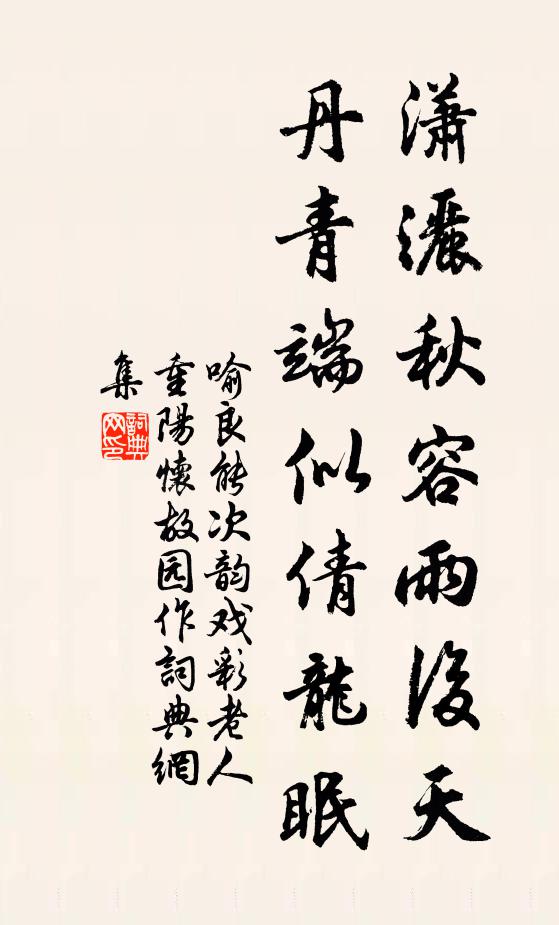 瀟灑秋容雨後天
丹青端似倩龍眠
喻良能次韵戏彩老人
重陽懷故园作詞典網
集
詞典
网印